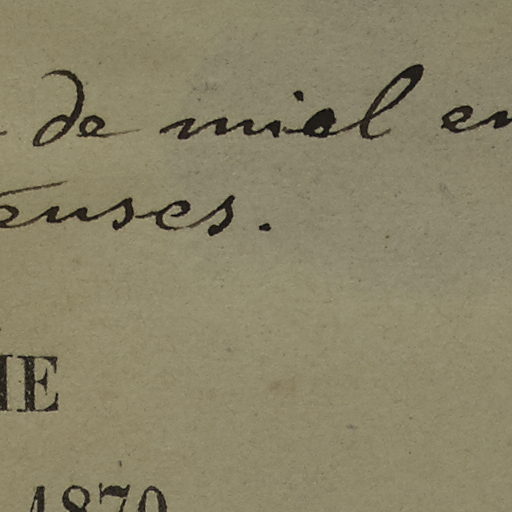 de miel en
euses.
IE
1870